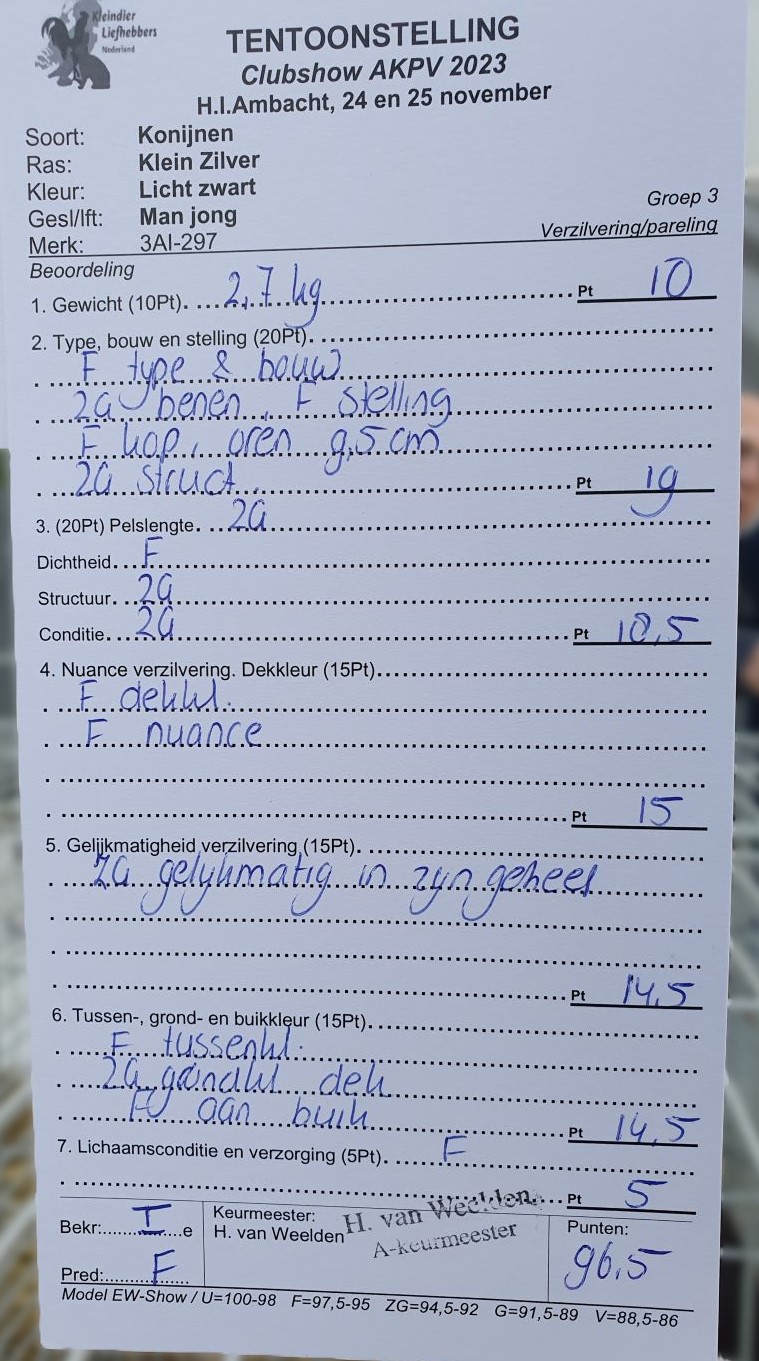 Kleindier
Liefhebbers
Nederland
TENTOONSTELLING
Clubshow AKPV 2023
H.I.Ambacht, 24 en 25 november
Soort: Konijnen
Ras: Klein Zilver
Kleur: Licht zwart
Gesl/lft: Man jong Groep 3
Merk: 3AI-297 Verzilvering/pareling
Beoordeling
1. Gewicht (10Pt). 2,7 kg Pt 10
2. Type, bouw en stelling (20Pt).
F type & bouw
ZG benen, F stelling
F kop, oren 9,5 cm
ZG struct. Pt 19
3. (20Pt) Pelslengte. ZG
Dichtheid. F
Structuur. ZG
Conditie. ZG Pt 18,5
4. Nuance verzilvering. Dekkleur (15Pt).
F dekkl.
F nuance
Pt 15
5. Gelijkmatigheid verzilvering (15Pt).
ZG gelykmatig in zyn geheel
Pt 14,5
6. Tussen-, grond- en buikkleur (15Pt).
F tussenkl.
ZG grondkl dek
aan buik Pt 14,5
7. Lichaamsconditie en verzorging (5Pt). F
Pt 5
Bekr: I e Keurmeester: H. van Weelden Punten:
H. van Weelden A-keurmeester 96,5
Pred: F
Model EW-Show / U=100-98 F=97,5-95 ZG=94,5-92 G=91,5-89 V=88,5-86